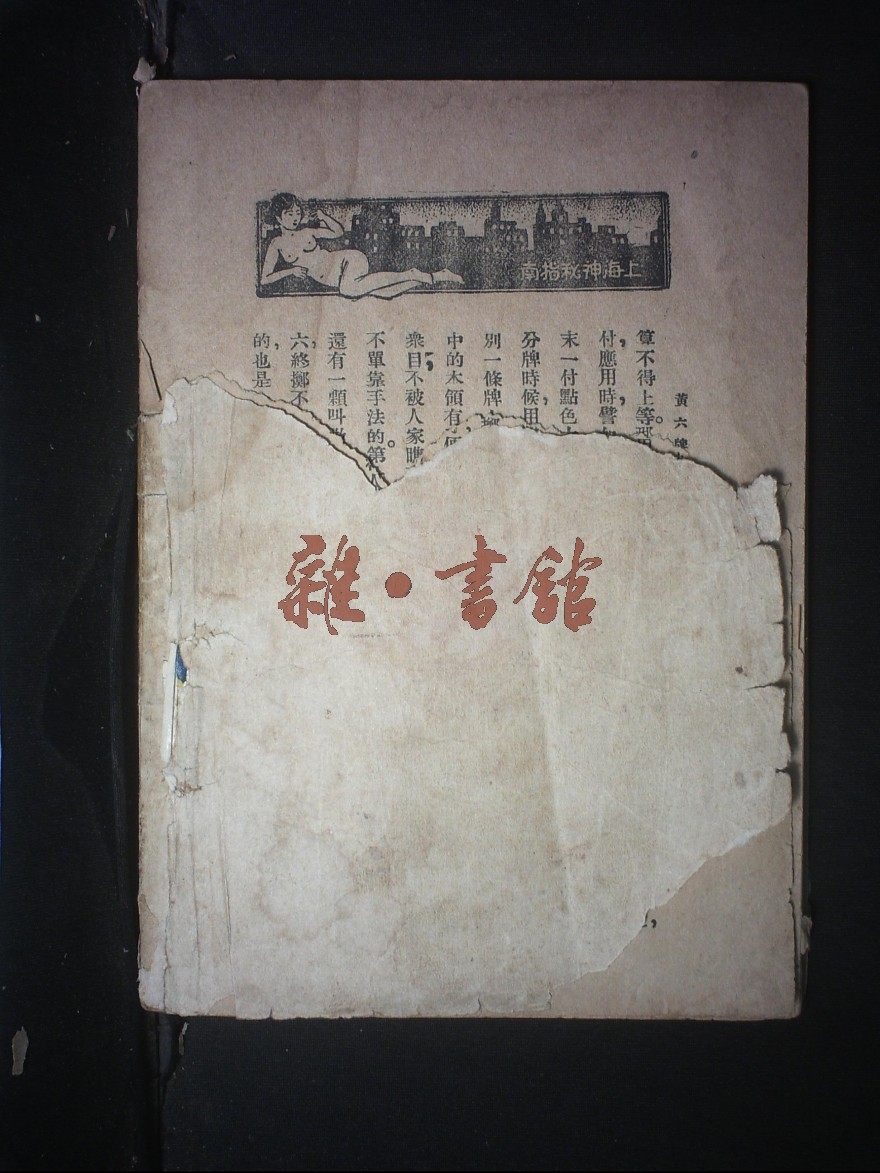 上海神秘指南
黃六牌
算不得上等。那
付，應用時譬如
末一付點色
分牌時候，用
別一條牌，
中的木領有
衆目不被人家瞧
不單靠手法的。第
還有一顆叫
六，終擲不
的，也是
雜•書館